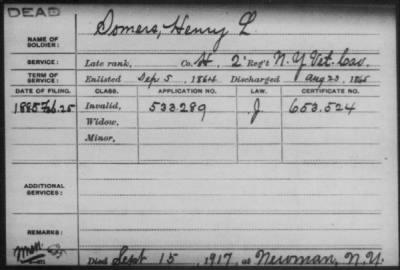 DEAD
NAME OF SOLDIER: Somers, Henry L.
SERVICE: Late rank, Co. H. 2" Reg't N.Y. Vet. Cav.
TERM OF SERVICE: Enlisted Sep 5, 1864 Discharged Aug 23, 1865
DATE OF FILING. CLASS. APPLICATION NO. LAW. CERTIFICATE NO.
1885 Feb. 25 Invalid, 533.289 J 653.524
Widow,
Minor,
ADDITIONAL SERVICES:
REMARKS:
Died Sept 15, 1917, at Newman, N.Y.